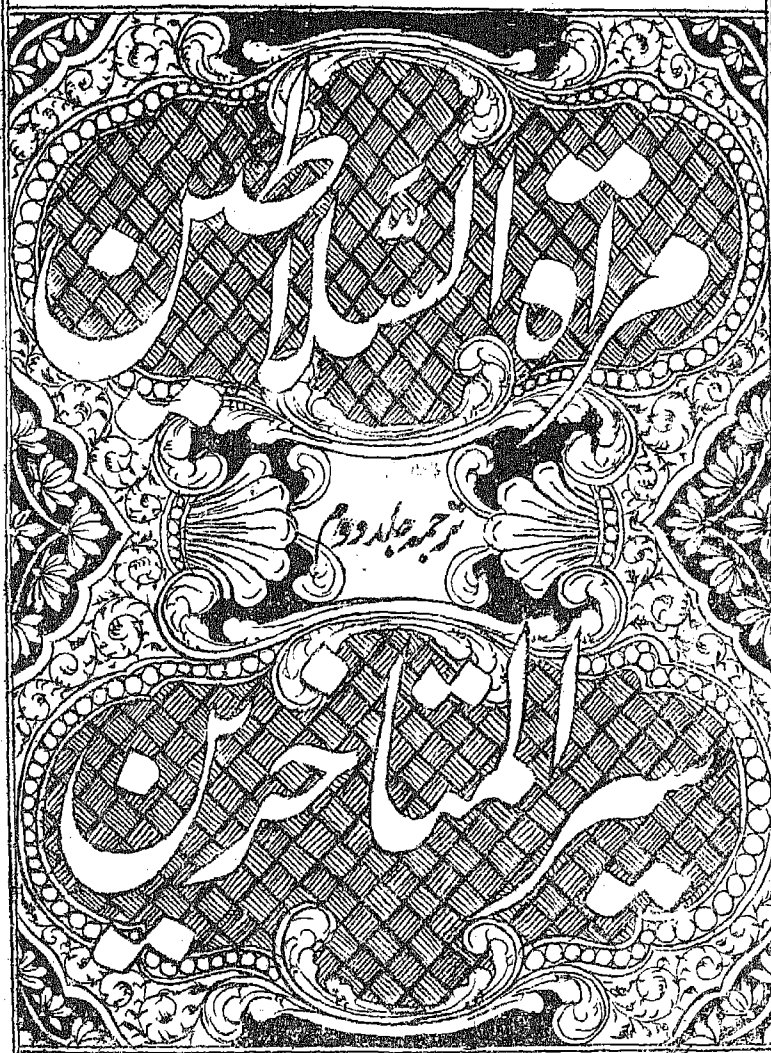 مرآة السلاطین
ترجمہ جلد دوم
سیر المتاخرین